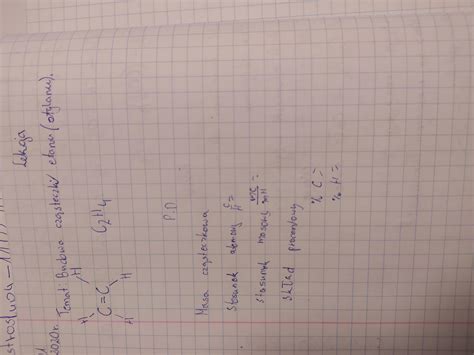 Lekcja
2020r. Temat Budowa cząsteczki etenu (etylenu).
H
H
C=C
H
H
C2H4
P.D
Masa cząsteczkowa
Stosunek atomowy C/H =
stosunek masowy mC/mH =
skład procentowy
% C =
% H =